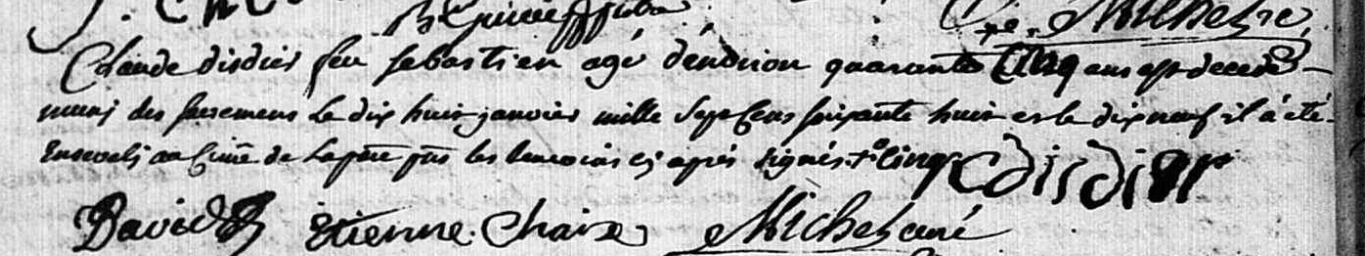 Michel Cre
Claude disdier feu sebastien agé d'environ quarante Cinq ans est decedé
muni des sacremens Le dix huit janvier mille Sept Cens soixante huit et le dix neuf il à été
Enseveli au Cim̃re de la pñte pñs les temoins cy aprés signés. + cinq C disdier
David Etienne Chaix Michel curé